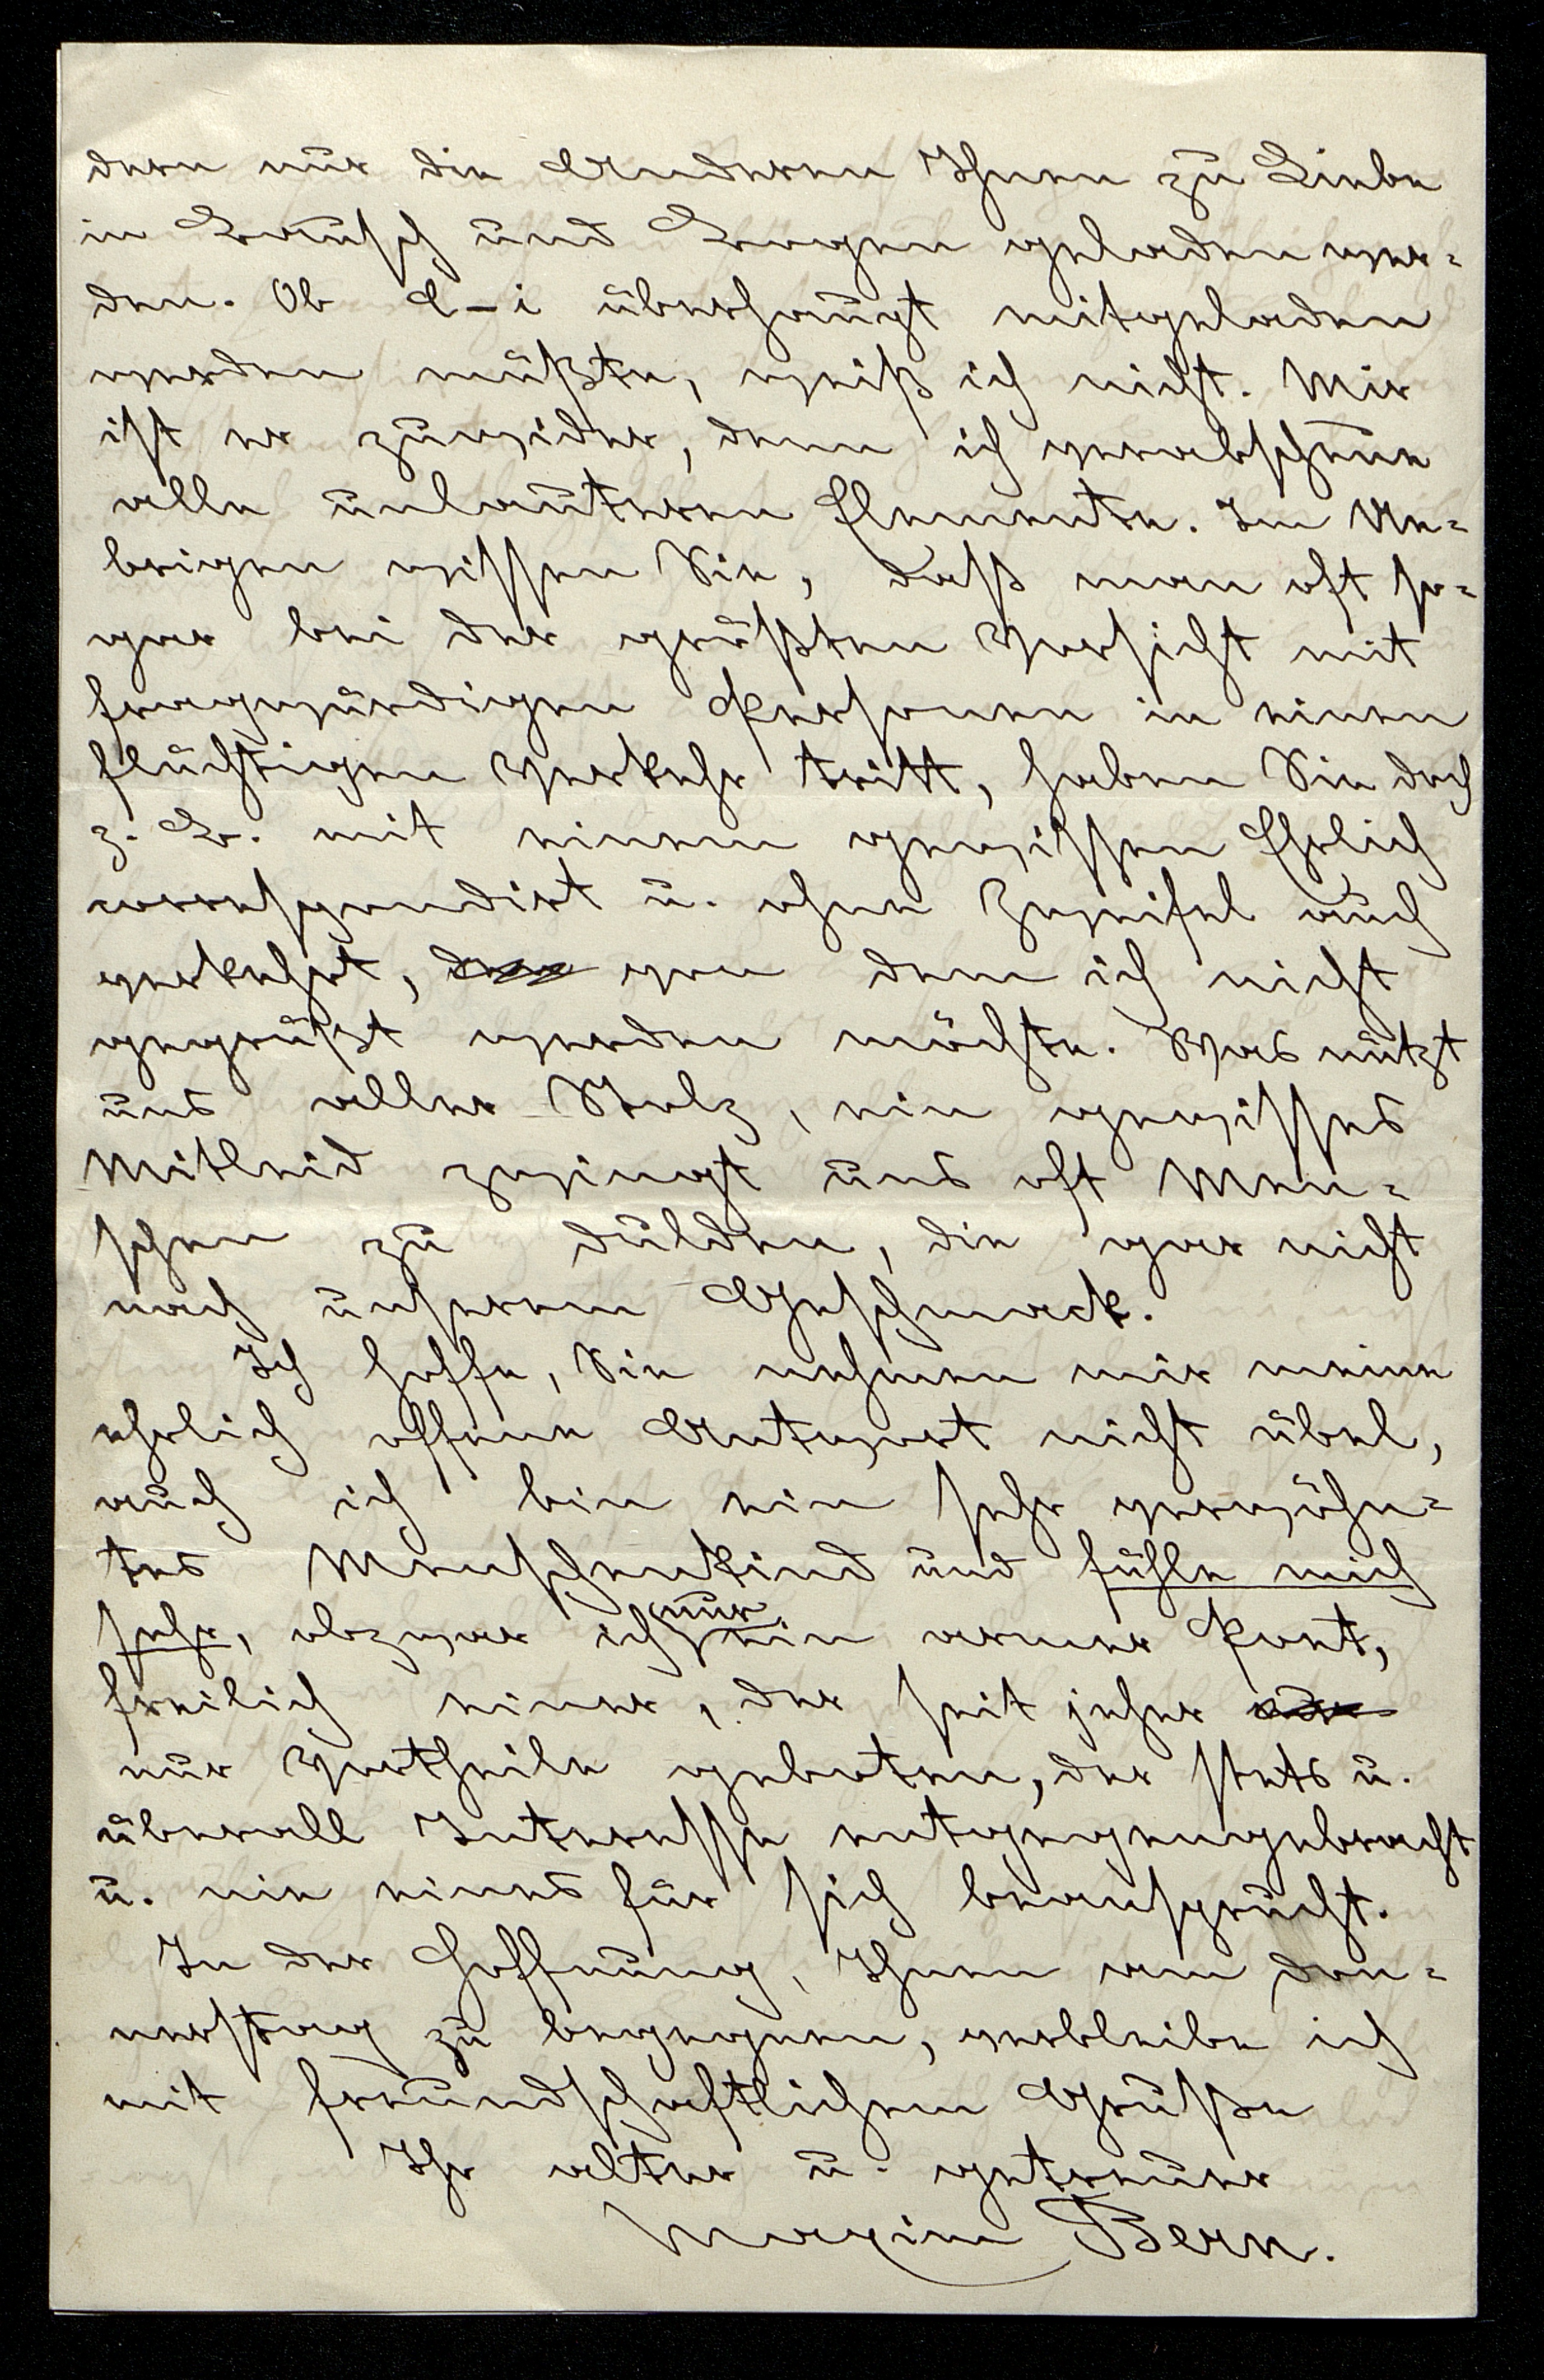 dern nur die Anderen Ihnen zu Liebe
in Bausch und Bogen geladen wer-
den. Ob L–i überhaupt mitgeladen
werden müßte, weiß ich nicht. Mir
ist er zuwider, denn ich verabscheue
alle unlauteren Elemente. Im Ue-
brigen wissen Sie, daß man oft so-
gar bei der größten Vorsicht mit
fragwürdigen Personen in einen
flüchtigen Verkehr tritt, haben Sie doch
z. B. mit einem gewissen Ehrlich
correspondirt u. ohne Zweifel auch
verkehrt, von dem ich nicht
gegrüßt werden möchte. Was nützt
uns aller Stolz, ein gewisses
Mitleid zwingt uns oft Men-
schen zu dulden, die gar nicht
nach unserem Geschmack.
Ich hoffe, Sie nehmen mir meine
ehrlich offene Antwort nicht übel,
auch ich bin ein sehr verwöhn-
tes Menschenkind und fühle mich
sehr, obzwar ich nur ein armer Poet,
freilich einer, der seit jeher
nur Vortheile geboten, der stets u.
überall Interesse entgegengebracht
u. nie eines für sich beansprucht.
In der Hoffnung, Ihnen am Don-
nerstag zu begegnen, verbleibe ich
mit freundschaftlichem Gruße
Ihr alter u. getreuer
Maxim Bern.